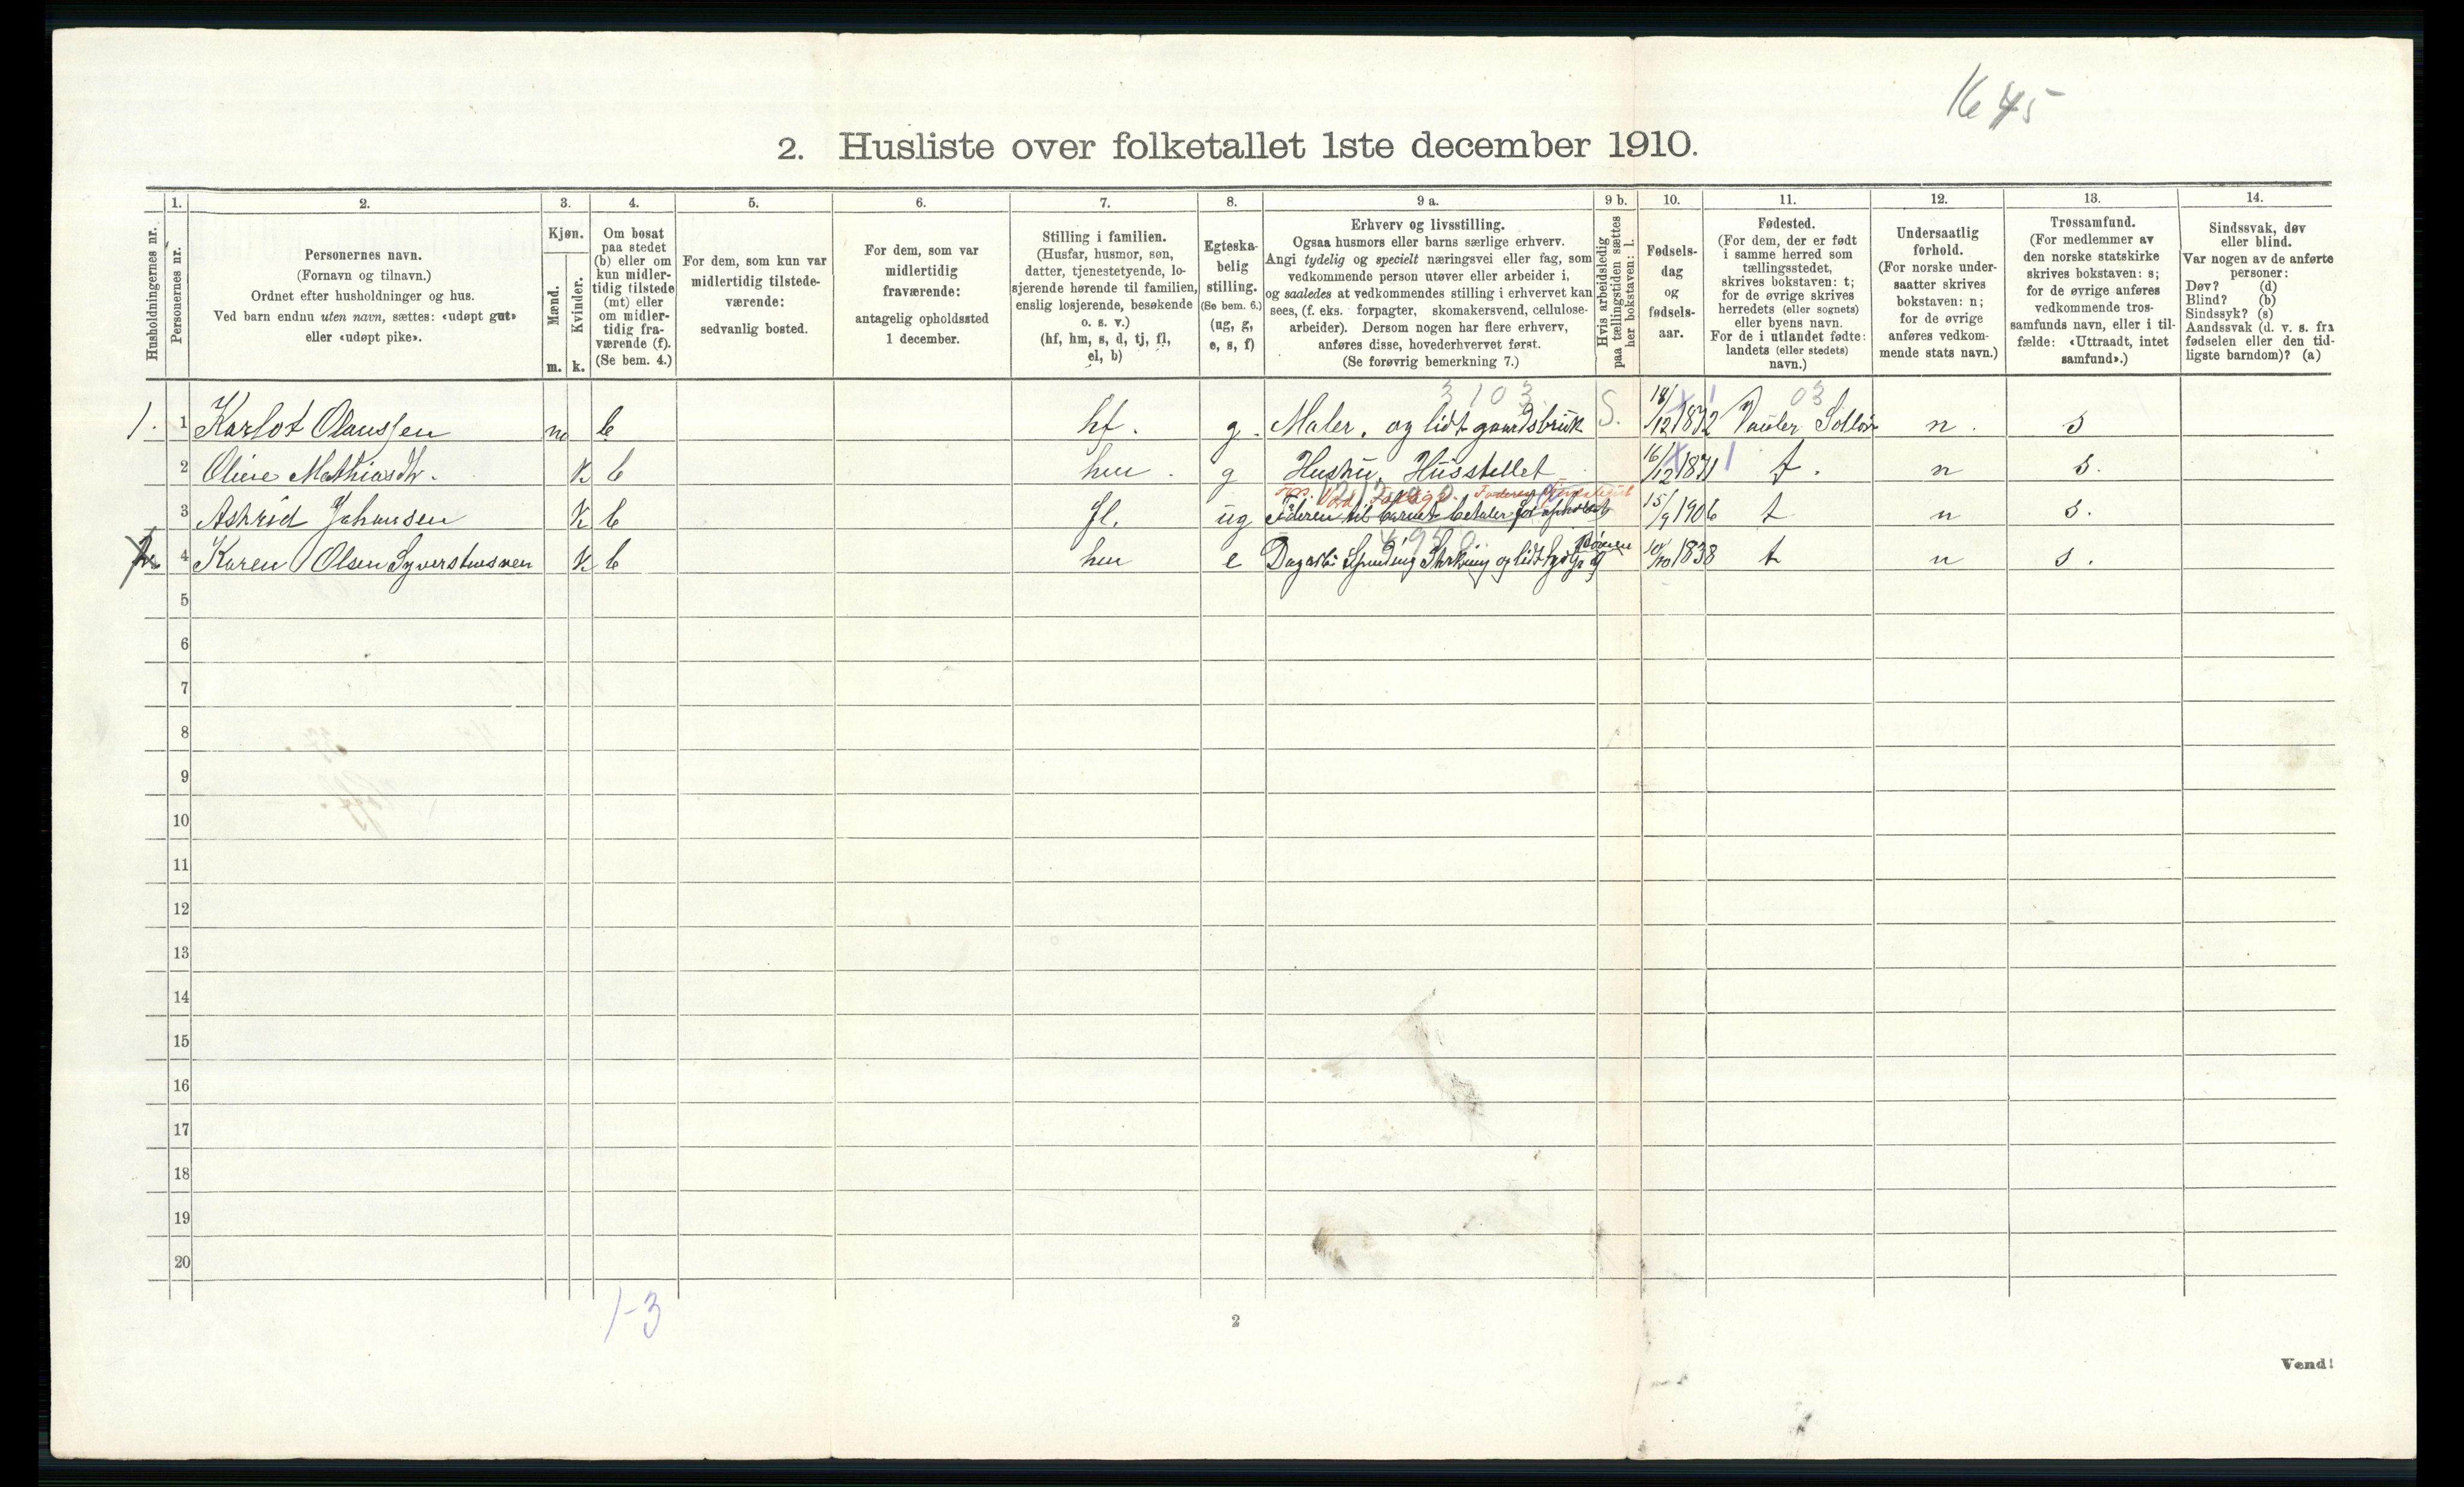 1645
2. Husliste over folketallet 1ste december 1910.
1. 2. 3. 4. 5. 6. 7. 8. 9 a. 9 b. 10. 11. 12. 13. 14.
Husholdningernes nr.
Personernes nr.
Personernes navn.
(Fornavn og tilnavn.)
Ordnet efter husholdninger og hus.
Ved barn endnu uten navn, sættes: «udøpt gut»
eller «udøpt pike».
Kjøn.
Mænd.
m.
Kvinder.
k.
Om bosat
paa stedet
(b) eller om
kun midler-
tidig tilstede
(mt) eller
om midler-
tidig fra-
værende (f).
(Se bem. 4.)
For dem, som kun var
midlertidig tilstede-
værende:
sedvanlig bosted.
For dem, som var
midlertidig
fraværende:
antagelig opholdssted
1 december.
Stilling i familien.
(Husfar, husmor, søn,
datter, tjenestetyende, lo-
sjerende hørende til familien,
enslig losjerende, besøkende
o. s. v.)
(hf, hm, s, d, tj, fl,
el, b)
Egteska-
belig
stilling.
(Se bem. 6.)
(ug, g,
e, s, f)
Erhverv og livsstilling.
Ogsaa husmors eller barns særlige erhverv.
Angi tydelig og specielt næringsvei eller fag, som
vedkommende person utøver eller arbeider i,
og saaledes at vedkommendes stilling i erhvervet kan
sees, (f. eks. forpagter, skomakersvend, cellulose-
arbeider). Dersom nogen har flere erhverv,
anføres disse, hovederhvervet først.
(Se forøvrig bemerkning 7.)
Hvis arbeidsledig
paa tællingstiden sættes
her bokstaven: l.
Fødsels-
dag
og
fødsels-
aar.
Fødested.
(For dem, der er født
i samme herred som
tællingsstedet,
skrives bokstaven: t;
for de øvrige skrives
herredets (eller sognets)
eller byens navn.
For de i utlandet fødte:
landets (eller stedets)
navn.)
Undersaatlig
forhold.
(For norske under-
saatter skrives
bokstaven: n;
for de øvrige
anføres vedkom-
mende stats navn.)
Trossamfund.
(For medlemmer av
den norske statskirke
skrives bokstaven: s;
for de øvrige anføres
vedkommende tros-
samfunds navn, eller i til-
fælde: «Uttraadt, intet
samfund».)
Sindssvak, døv
eller blind.
Var nogen av de anførte
personer:
Døv? (d)
Blind? (b)
Sindssyk? (s)
Aandssvak (d. v. s. fra
fødselen eller den tid-
ligste barndom)? (a)
3103. 03
1. 1 Karlot Olaussen m b hf. g. Maler, og lidt gaardsbruk S. 18/12 1872 Vaaler Solør n. s
2 Oline Mathiasdtr. K b hm. g Hustru, Husstellet 16/12 1871 t. n s.
3 Astrid Johansen K b fl. ug Faderen til barnet betaler for 15/9 1906 t n s.
4 Karen Olsen Syverstuen K b hm e Spinding Strikning og lidt 10/10 1838 t n s.
5
6
7
8
9
10
11
12
13
14
15
16
17
18
19
20
1-3
2
Vend!